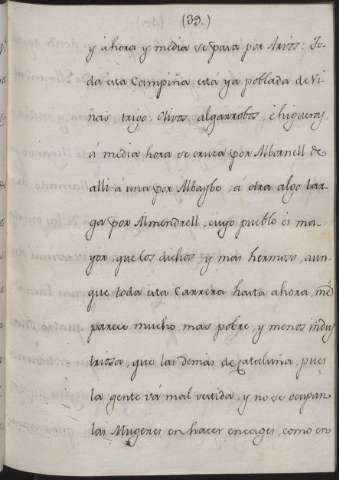 (39.)
y ahora y média se pasa por Arvos: To-
da esta Campiña está ya poblada de Vi-
ñas, trigo, Olivos, algarrobos, é higueras,
á média hora se cruza por Albornell de
alli á una por Albagbe, á otra algo lar-
ga por Almendrell, cuyo pueblo es ma-
yor, que los dichos, y mas hermoso, aun-
que toda esta Carrera hasta ahora, me
parece mucho mas pobre, y menos indus
triosa, que las demás de Cataluña, pues
la gente vá mal vestida, y no se ocupan
las Mugeres en hacer encages, como en